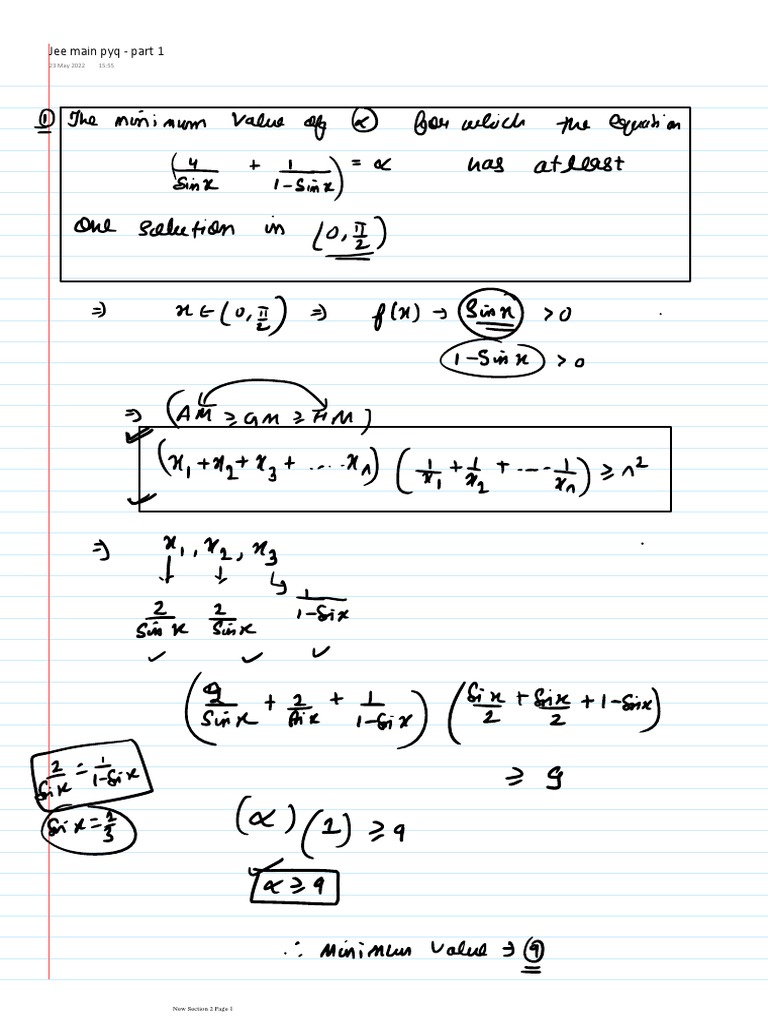 Jee main pyq - part 1
23 May 2022 15:55
① The minimum value of α for which the equation
(4/Sinx + 1/(1-Sinx)) = α has atleast
One solution in (0, π/2)
⇒ x ∈ (0, π/2) ⇒ f(x) → Sinx > 0
1-Sinx > 0
⇒ (AM ≥ GM ≥ HM)
(x₁+x₂+x₃+ ....xₙ) (1/x₁ + 1/x₂ + ---- 1/xₙ) ≥ n²
⇒ x₁, x₂, x₃
2/Sinx 2/Sinx 1/(1-Six)
(2/Sinx + 2/Six + 1/(1-Six)) (Six/2 + Six/2 + 1-Six)
≥ 9
2/Six = 1/(1-Six)
Six = 2/3
(α) (1) ≥ 9
α ≥ 9
∴ minimum value ⇒ 9
New Section 2 Page 1